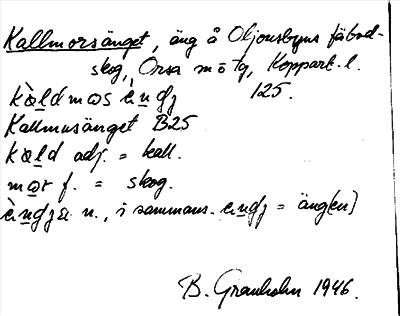 Kallmorsänget, äng å Oljonsbyns fäbod-
skog, Orsa m ö tg, Kopparb. l.
kàldmɷs èngʒ 125.
Kallmusänget B25
kæld adj. = kall.
mɷr f. = skog.
èngʒæ n., i sammans. engʒ = äng(en)
B. Granholm 1946.